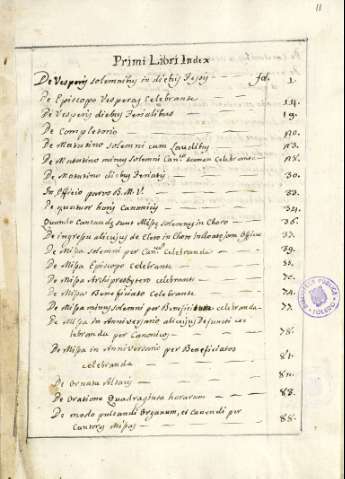 11
Primi Libri Index
De Vesperis solemnibus in diebus — fol. 1.
De Episcopo Vesperas Celebrante — 14.
De Vesperis diebus Ferialibus — 19.
De Completorio — 20.
De Matutino solemni cum Laudibus — 23.
De Matutino minus solemni Canco tamen Celebrando — 28.
De Matutino diebus Feriatis — 30.
In Officio parvo B. M. V. — 33.
De quatuor horis Canonicis — 34.
Quando Cantandę sunt Missę solemnes in Choro — 36.
De ingressu alicujus de Clero in Choro
De Missa solemni per Cancos Celebranda — 49.
De Missa Episcopo celebrante
De Missa Archipresbytero celebrante
De Missa Beneficiato Celebrante
De Missa minus solemni per celebranda — 77.
De Missa in Anniversario alicujus Defuncti cele
branda per Canonicos — 78.
De Missa in Anniversario per Beneficiatos
celebranda — 81.
De Ornatu Altaris — 82.
De Oratione Quadraginta horarum — 88.
De modo pulsandi Organum, et Canendi per
Cantores Missas — 88.
BIBLIOTECA PUBLICA
TOLEDO